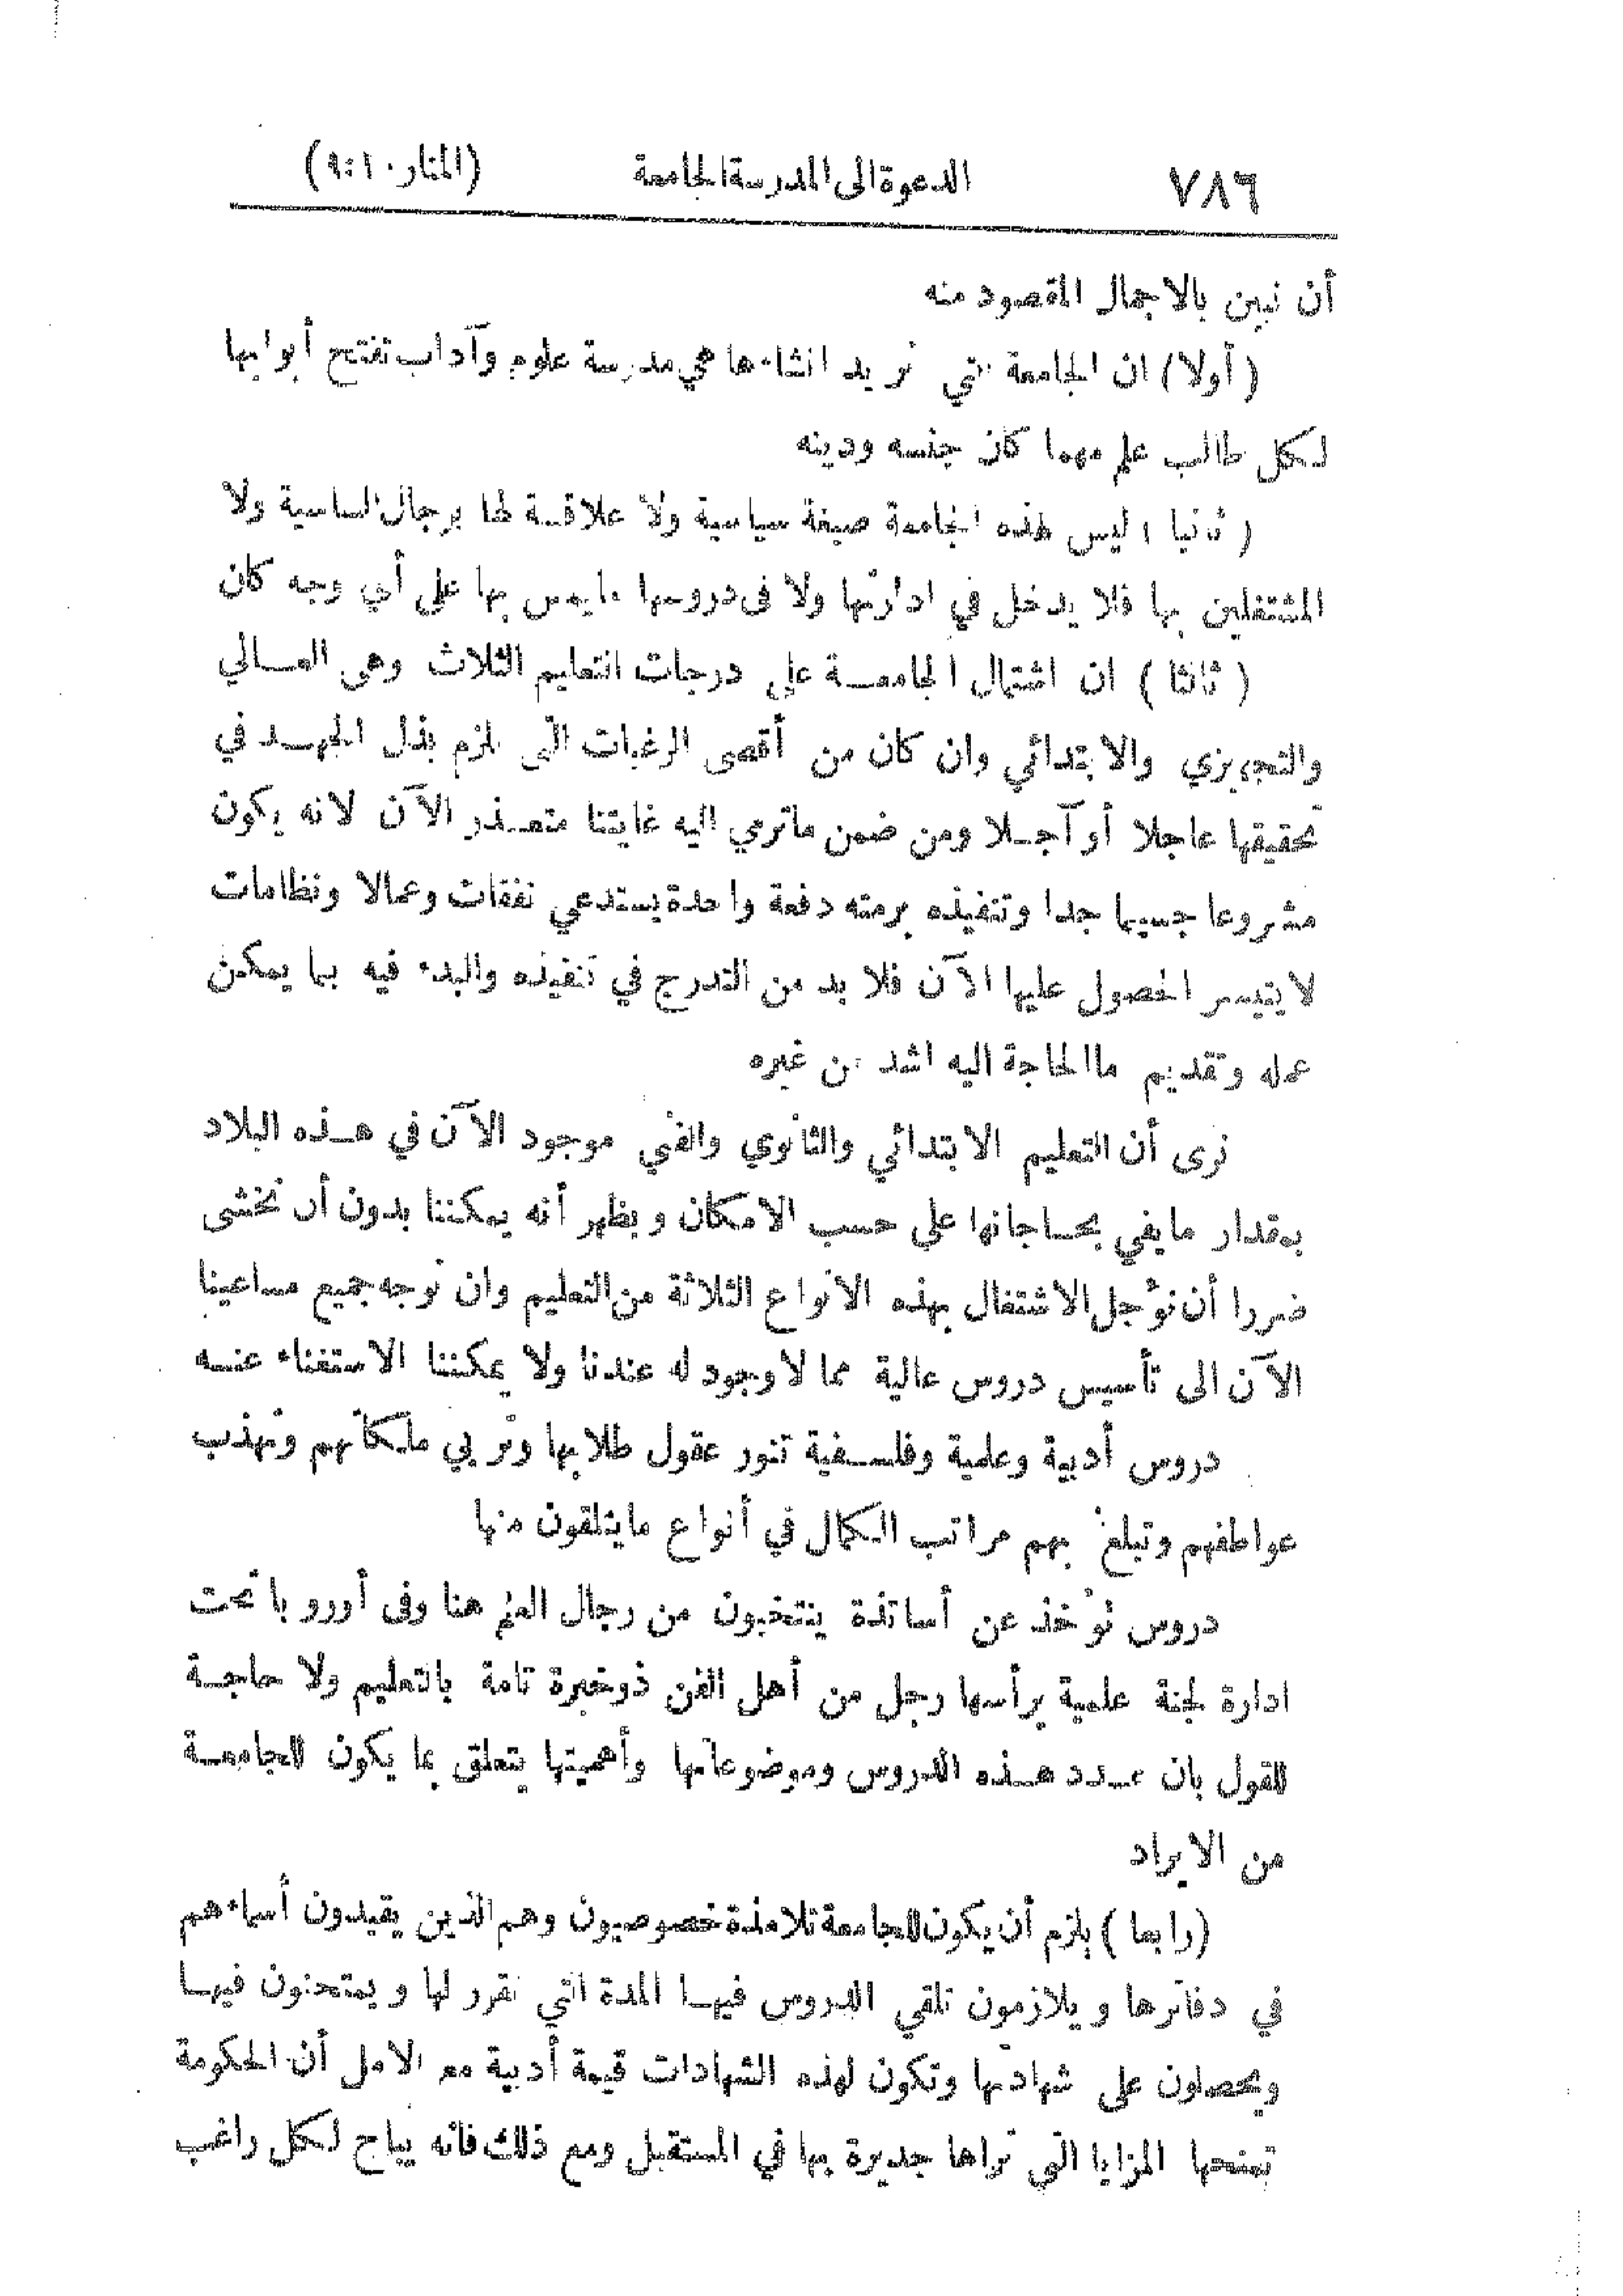 ٧٨٦ الدعوة الى المدرسة الجامعة (المنار ١٠:٩)
أن نبين بالاجمال المقصود منه
(أولا) ان الجامعة التي نريد انشاءها هي مدرسة علوم وآداب تفتح أبوابها
لكل طالب علم مهما كان جنسه ودينه
(ثانيا) ليس لهذه الجامعة صبغة سياسية ولا علاقة لها برجال السياسية ولا
المشتغلين بها فلا يدخل في ادارتها ولا في دروسها ما يمس بها على أي وجه كان
(ثالثا) ان اشتمال الجامعة على درجات التعليم الثلاث وهي العالي
والتجهيزي والابتدائي وان كان من أقصى الرغبات التي يلزم بذل الجهد في
تحقيقها عاجلا أو آجلا ومن ضمن ماترمي اليه غايتنا متعذر الآن لانه يكون
مشروعا جسيما جدا وتنفيذه برمته دفعة واحدة يستدعي نفقات وعمالا ونظامات
لا يتيسر الحصول عليها الآن فلا بد من التدرج في تنفيذه والبدء فيه بما يمكن
عمله وتقديم ما الحاجة اليه اشد من غيره
نرى أن التعليم الابتدائي والثانوي والفني موجود الآن في هذه البلاد
بمقدار ما يفي بحاجاتها على حسب الامكان ويظهر أنه يمكننا بدون أن نخشى
ضررا أن نؤجل الاشتغال بهذه الانواع الثلاثة من التعليم وان نوجه جميع مساعينا
الآن الى تأسيس دروس عالية مما لا وجود له عندنا ولا يمكننا الاستغناء عنه
دروس أدبية وعلمية وفلسفية تنور عقول طلابها وتربي ملكاتهم وتهذب
عواطفهم وتبلغ بهم مراتب الكمال في أنواع ما يتلقون منها
دروس تؤخذ عن أساتذة ينتخبون من رجال العلم هنا وفي أوروبا تحت
ادارة لجنة علمية يرأسها رجل من أهل الفن ذو خبرة تامة بالتعليم ولا حاجة
للقول بان عدد هذه الدروس وموضوعاتها وأهميتها يتعلق بما يكون للجامعة
من الايراد
(رابعا) يلزم أن يكون للجامعة تلامذة خصوصيون وهم الذين يقيدون أسماءهم
في دفاترها ويلازمون تلقي الدروس فيها المدة التي تقرر لها ويمتحنون فيها
ويحصلون على شهادتها وتكون لهذه الشهادات قيمة أدبية مع الامل أن الحكومة
تمنحها المزايا التي تراها جديرة بها في المستقبل ومع ذلك فانه يباح لكل راغب